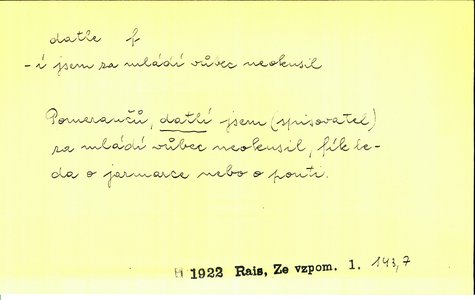 datle f
- í jsem za mládí vůbec neokusil
Pomerančů, datlí jsem (spisovatel)
za mládí vůbec neokusil, fík le-
da o jarmarce nebo o pouti.
H 1922 Rais, Ze vzpom. 1. 143,7